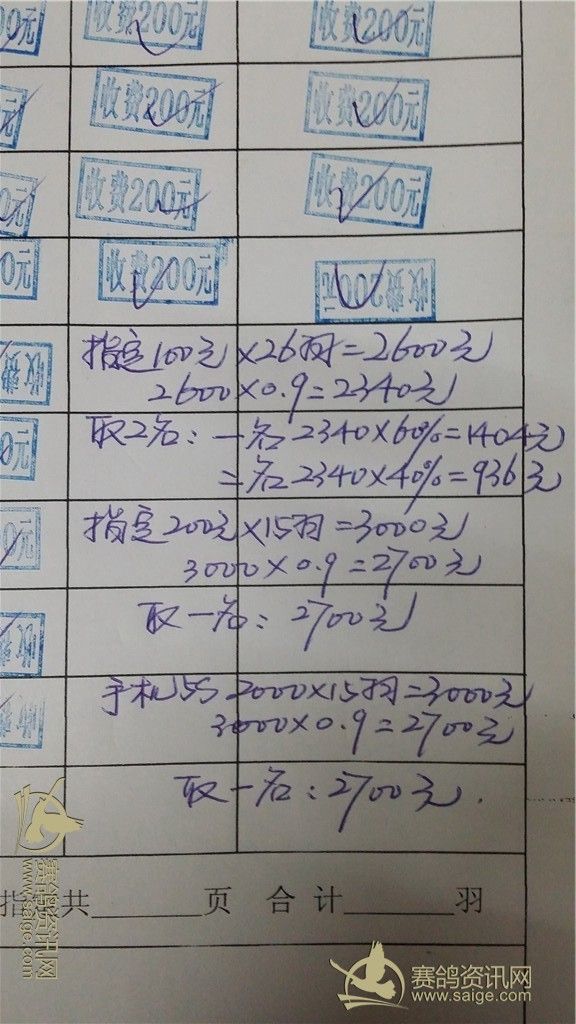 收费200元 收费200元
收费200元 收费200元
收费200元 收费200元
0元 收费200元 收费200元
收费 指定100元×26羽=2600元
2600×0.9=2340元
0元 取2名：一名 2340×60%=1404元
二名 2340×40%=936元
0元 指定200元×15羽=3000元
3000×0.9=2700元
收费 取一名：2700元
手机55 2000×15羽=3000元
3000×0.9=2700元
取一名：2700元.
指定共______页 合计______羽
赛鸽资讯网
www.saige.com
赛鸽资讯网
www.saige.com